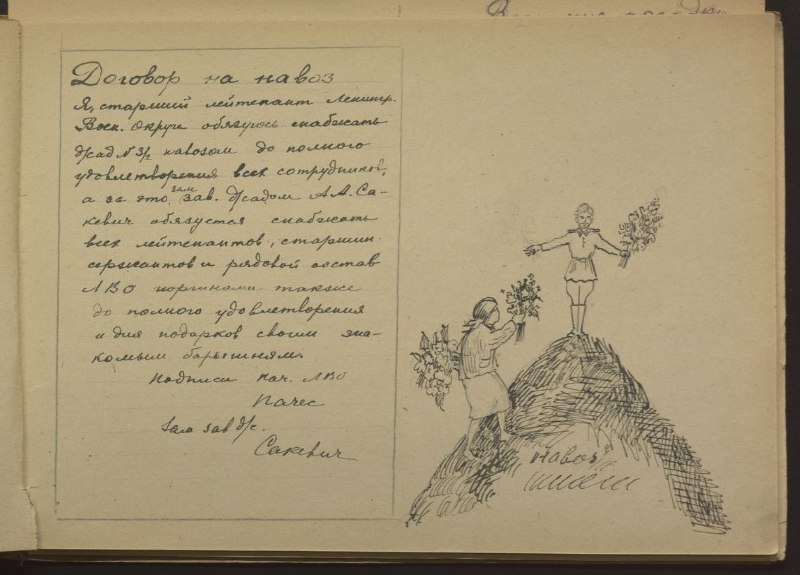 Договор на навоз
Я, старший лейтенант Ленингр.
Воен. Округа обязуюсь снабжать
д/сад N 3/2 навозом до полного
удовлетворения всех сотрудников,
а за это зам зав. д/садом А.А. Са-
кевич обязуется снабжать
всех лейтенантов, старшин.
сержантов и рядовой состав
ЛВО также
до полного удовлетворения
и для подарков своим зна-
комым барышням.
Подписи нач. ЛВО
Пачес
Зам зав д/с.
Сакевич
навоз